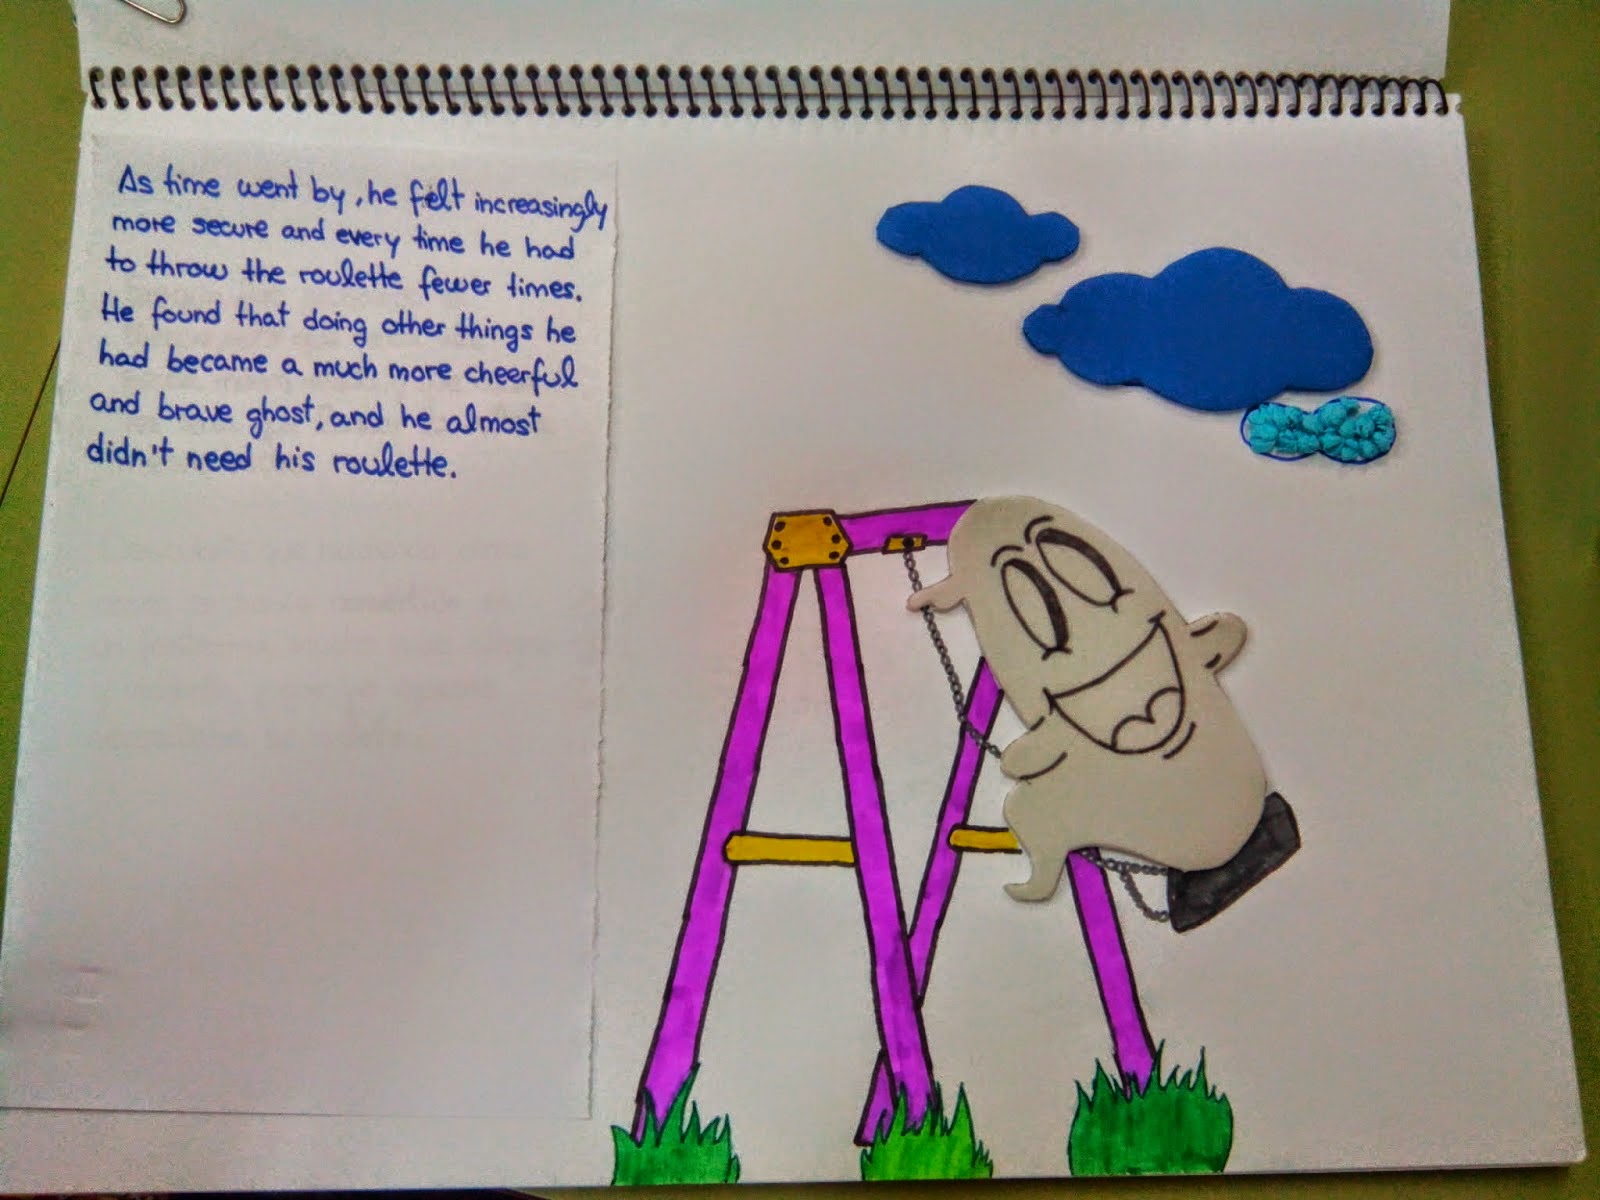 As time went by, he felt increasingly
more secure and every time he had
to throw the roulette fewer times.
He found that doing other things he
had became a much more cheerful
and brave ghost, and he almost
didn't need his roulette.